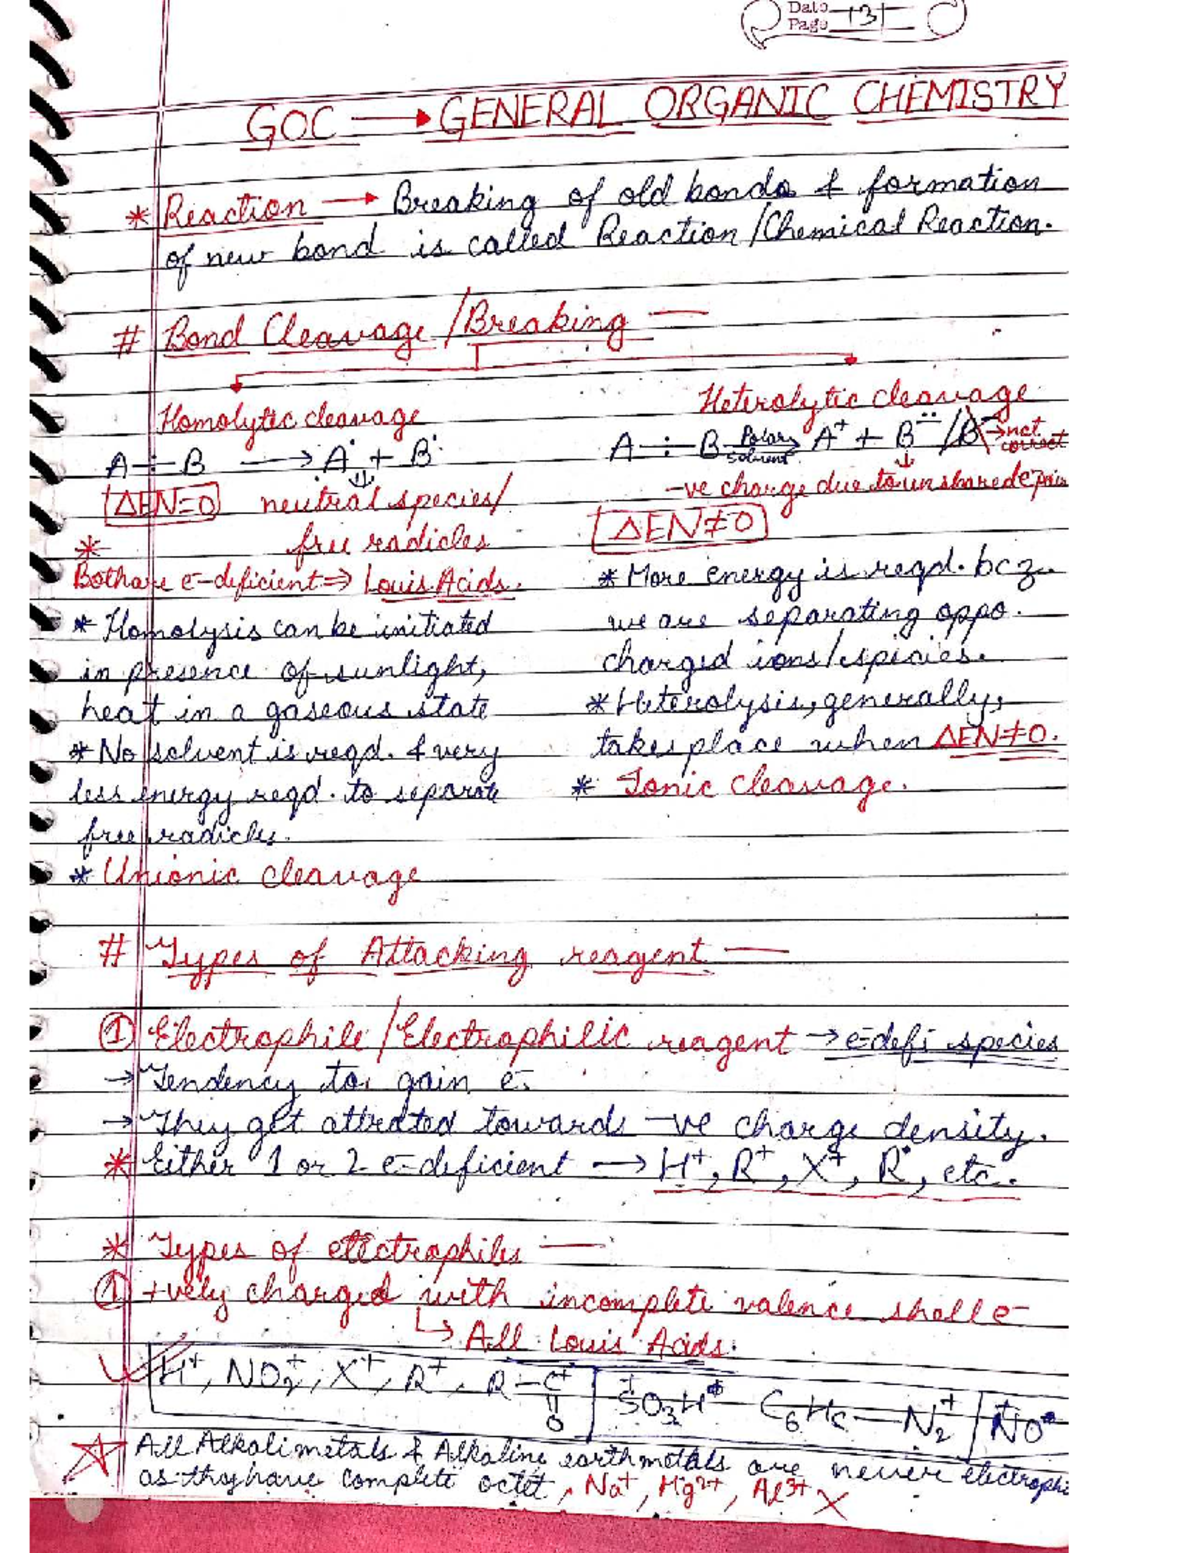 Date 131
Page
GOC → GENERAL ORGANIC CHEMISTRY
* Reaction → Breaking of old bonds & formation
of new bond is called Reaction/Chemical Reaction.
# Bond Cleavage/Breaking —
Homolytic cleavage
A ÷ B → A• + B•
ΔEN=0 neutral species/
free radicles
*
Both are e-deficient ⇒ Louis Acids.
* Homolysis can be initiated
in presence of sunlight,
heat in a gaseous state
* No solvent is reqd. & very
less energy reqd. to separate
free radicles.
* Unionic cleavage
Heterolytic cleavage
A ÷ B Polar solvent → A⁺ + B̈⁻ / B⁻ → not correct
-ve charge due to unshared e⁻ pair
ΔEN≠0
* More energy is reqd. bcz
we are separating oppo.
charged ions/espicies.
* Heterolysis, generally,
takes place when ΔEN≠0.
* Ionic cleavage.
# Types of Attacking reagent —
① Electrophile/Electrophilic reagent → e⁻defi species
→ Tendency to gain e⁻.
→ They get attrated towards -ve charge density.
* Either 1 or 2 e⁻deficient → H⁺, R⁺, X⁺, R•, etc.
* Types of electrophiles —
① +vely charged with incomplete valence shell e⁻
↳ All Louis Acids.
H⁺, NO₂⁺, X⁺, R⁺, R–C⁺=O SO₃H C₆H₅–N₂⁺ NO
☆ All Alkali metals & Alkaline earth metals are never electrophi
as they have complete octet, Na⁺, Mg²⁺, Al³⁺ X